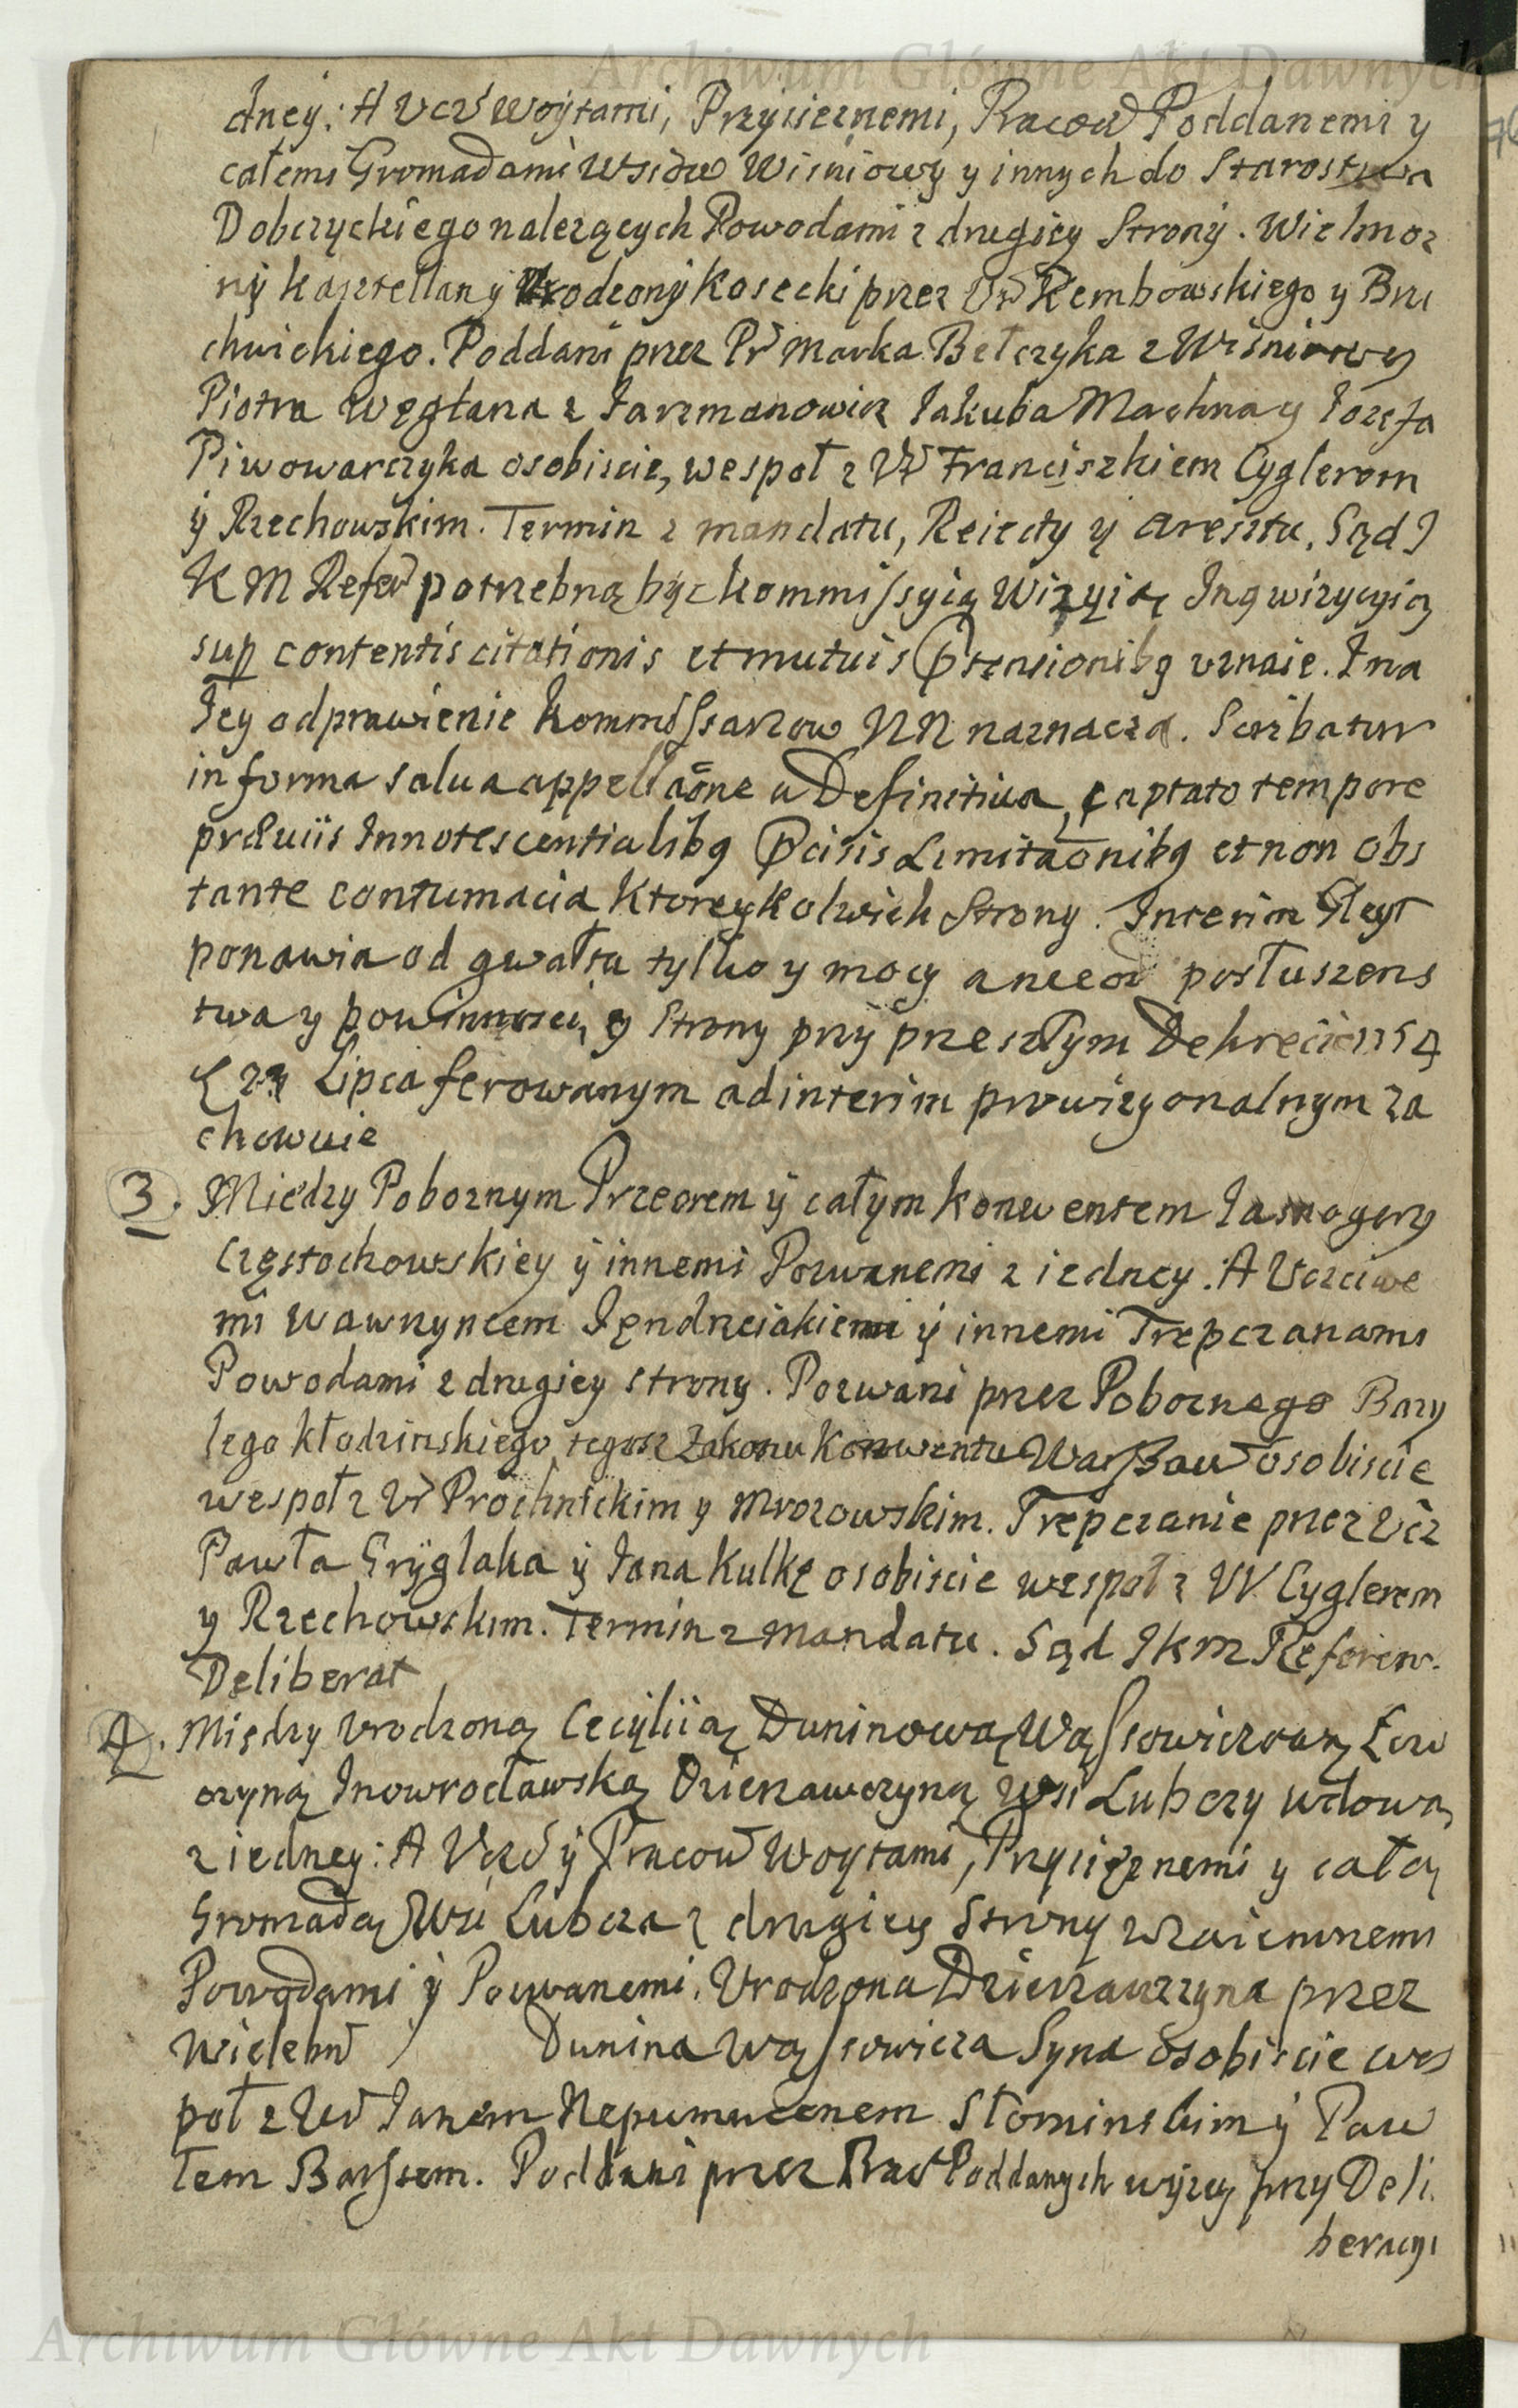 Archiwum Główne Akt Dawnych
dney: A Vcz Woytami, Przysieznemi, Pracow Poddanemi y
całemi Gromadami Wsiow Wisniowy y innych do Starostwa
Dobczyckiego nalezących Powodami z drugiey Strony. Wielmoz
ny kasztellan y Urodzony Kosecki przez Ur Rembowskiego y Bru
chwickiego. Poddani przez Pr Marka Bełczyka z Wisniowy
Piotra Węglana z Jarzmanowic Jakuba Machna y Jozefa
Piwowarczyka osobiscie, wespoł z Ur Franciszkiem Cyglerem
y Rzechowskim. Termin z mandatu, Reiekty y aresztu. Sąd J
K M Refer potrzebną bydz kommissyią Wizyią Inqwizycyią
sup contentis citationis et mutuis ptensionibq vznaie. I na
Jey odprawienie kommissarzow NN naznacza. Scribatur
in forma salua appellaone a Definitiua, captato tempore
præuiis Innotescentialibq Pcisis Limitaonibq et non obs
tante contumacia ktoreykolwiek Strony. Interim Gleyt
ponawia od gwałtu tylko y mocy a nie od posłuszens
twa y powinnosci, y Strony przy przeszłym Dekrecie 1754
Lipca ferowanym ad interim prowizyonalnym za
chowuie
3. Między Poboznym Przeorem y całym konwentem Jasnogory
Częstochowskiey y innemi Pozwanemi z iedney. A Vczciwe
mi Wawrzyncem Jęndrzeiakiem y innemi Trepczanami
Powodami z drugiey strony. Pozwani przez Poboznego Bazy
lego Kłodzinskiego tegosz Zakonu Konwentu Warszaw osobiscie
wespoł z Ur Prochnickim y Mrozowskim. Trepczanie przez Vcz
Pawła Gryglaka y Jana Kulkę osobiscie wespoł z VV Cyglerem
y Rzechowskim. Termin z Mandatu. Sąd JKM Referen.
Deliberat
4. Między Vrodzoną Cecyliią Duninową Wąssowiczową Łow
czyną Inowrocławską Dzierzawczyną Wsi Lubczy wdową
z iedney: A Vczc y Pracow Woytami, Przysięznemi y całą
Gromadą Wsi Lubcza z drugiey Strony wzaiemnemi
Powodami y Pozwanemi. Vrodzona Dzierzawczyna przez
Wielebn Dunina Wąssowicza Syna osobiscie wes
poł z Ur Janem Nepumucenem Słominskim y Paw
łem Barssem. Poddani przez Prac Poddanych wyzey przy Deli
beracyi
Archiwum Główne Akt Dawnych